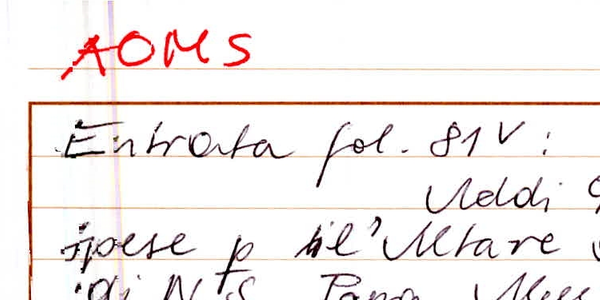 AOMS
Entrata fol. 81v:
Addi
spese p il'Altare
di N S. Papa